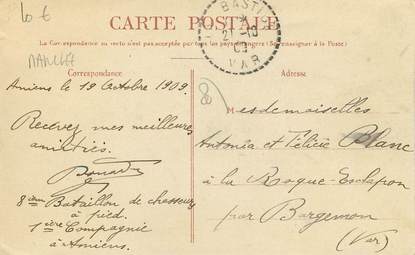 10 €
CARTE POSTALE
La Correspondance au recto n'est pas acceptée par tous les pays étrangers (Se renseigner à la Poste)
MANCHE
Correspondance
Adresse
BASTI
21-10
09
VAR
80
Amiens le 19 Octobre 1909.
Recevez mes meilleures
amitiés.
8ième Bataillon de chasseurs
à pied.
1ière Compagnie
à Amiens.
Mesdemoiselles
Antonia et Félicie Blanc
à la Roque-Esclapon
par Bargemon
(Var)